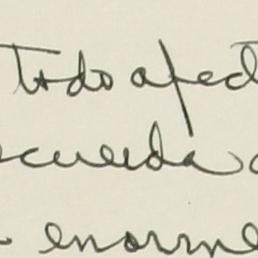 Todo afect
cuerda
enorme